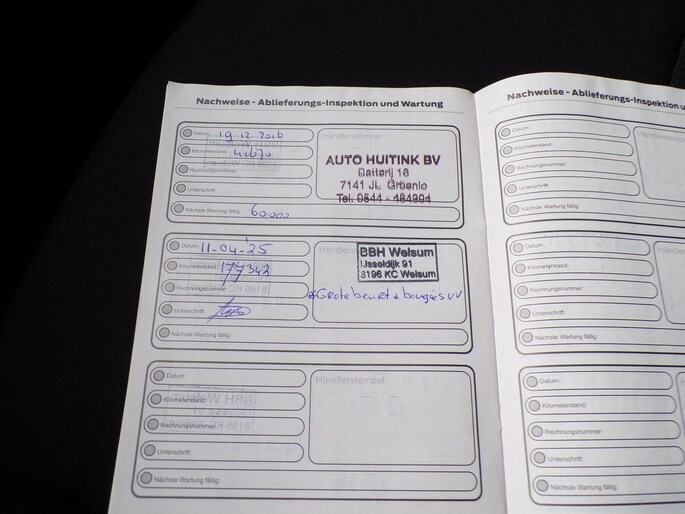 Nachweise - Ablieferungs-Inspektion und Wartung
Datum: 19 12 2016
Kilometerstand:
Rechnungsnummer:
Unterschrift:
Nächste Wartung fällig: 60000
Händlerstempel
AUTO HUITINK BV
Batterij 16
7141 JL Groenlo
Tel. 0544 - 464904
Datum: 11-04-25
Kilometerstand: 177342
Rechnungsnummer:
Unterschrift:
Nächste Wartung fällig:
BBH Welsum
IJsseldijk 91
8196 KC Welsum
Grote beurt + bougies vv
Datum:
Kilometerstand:
Rechnungsnummer:
Unterschrift:
Nächste Wartung fällig:
Händlerstempel
Nachweise - Ablieferungs-Inspektion
Datum:
Kilometerstand:
Rechnungsnummer:
Unterschrift:
Nächste Wartung fällig:
Datum:
Kilometerstand:
Rechnungsnummer:
Unterschrift:
Nächste Wartung fällig:
Datum:
Kilometerstand:
Rechnungsnummer:
Unterschrift:
Nächste Wartung fällig: